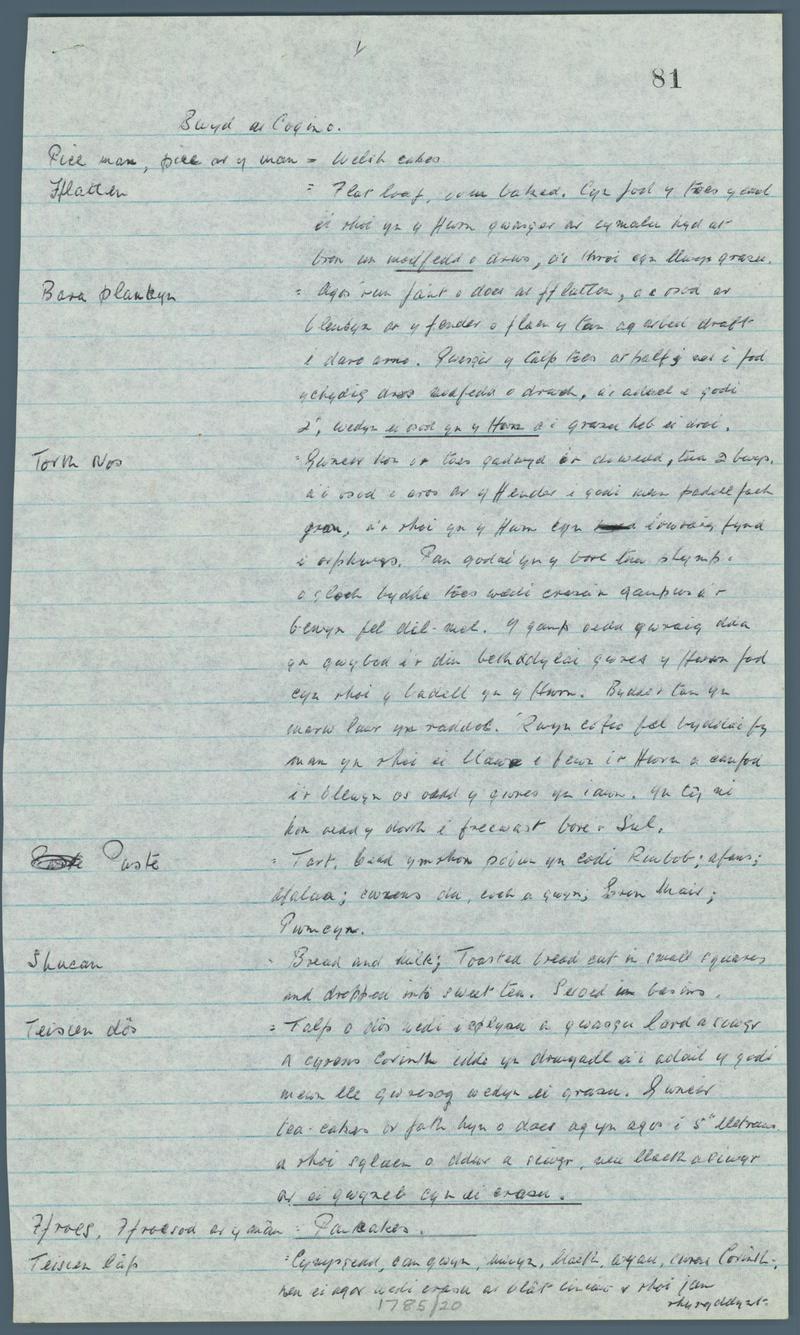 81
Bwyd a Coginio.
Pice man, pice ar y man = Welsh cakes
Fflatten = Flat loaf, oven baked. Cyn fod y toes yn cael
ei rhoi yn y Ffwrn gwasger ar cymalu hyd at
bron un modfedd o drws, a'i throi cyn llwyr grasu.
Bara plankyn = Agos run faint o does ar fflatten, a'i osod ar
blenkyn ar y fender o flaen y tan ag arbed draft
i daro arno. Gwasgir y talp toes at half i fod
ychydig dros modfedd o drwch, a'i adael i godi
2", wedyn ei osod yn y Ffwrn a'i grasu heb ei droi.
Torth Nos = Gwneir hon o'r toes gadwyd i'r diwedd, tua 2 bwys.
a'i osod i aros ar y Ffender i godi mewn padell fach
gron, a'i rhoi yn y Ffwrn cyn i'r wraig fynd
i orphwys. Pan godai yn y bore tua phymp
o gloch bydde toes wedi crasu'n gampus a'r
bewyn fel dil-mel. Y gamp oedd gwraig dda
yn gwybod i'r dim beth ddylai gwres y Ffwrn fod
cyn rhoi y badell yn y Ffwrn. Bydde'r tan yn
marw lawr yn raddol. Rwyn cofio fel byddai fy
mam yn rhoi ei llawe i fewn i'r Ffwrn a canfod
i'r blewyn os oedd y gwres yn iawn. Yn tŷ ni
hon oedd y dorth i frecwast bore Sul.
Paste = Tart, beth ymrhon pobun yn codi Riwbob; afans;
afalau; cwrens du, coch a gwyn; Eron Mair;
Pwmcyn.
Shucan = Bread and Milk; Toasted bread cut in small squares
and dropped into sweet tea. Served in basins.
Teisen dôs = Talp o dôs wedi i a gwasgu lard a siwgr
a cyrens Corinth iddi yn drwyadl a'i adael y godi
mewn lle gwresog wedyn ei grasu. Gwneir
tea-cakes o'r fath hyn o does ag yn agos i 5" lletraws
a rhoi sglaen o ddwr a siwgr, neu llaeth a siwgr
ar ei gwyneb cyn ei crasu.
Ffroes, Ffroesod ar y mân = Pancakes.
Teisen lâp = Cymysgedd, can gwyn, mwyn, llaeth, wyau, cwrens Corinth.
neu ei agor wedi crasu ar blât a rhoi jam
rhyngddynt.
1785/20